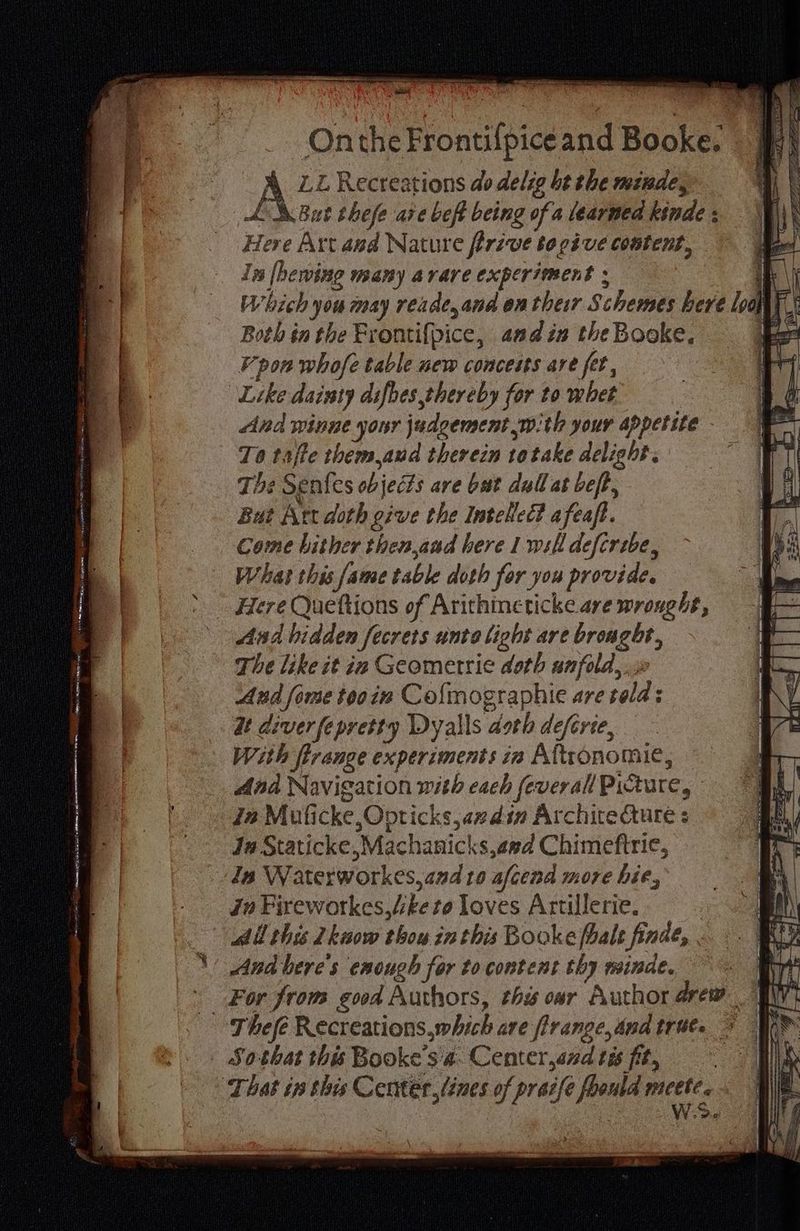 On the Frontiſpice and Booke.
ALL Recreations do delight the minde,
But theſe are beſt being of a learned kinde:
Here Art and Nature ſtrive to give content,
In ſhewing many a rare experiment;
Which you may reade, and on their Schemes here look
Both in the Frontiſpice, and in the Booke.
Vpon whoſe table new conceits are ſet,
Like dainty diſhes, thereby for to whet
And winne your judgement, with your appetite
To taſte them, and therein to take delight.
The Senſes objects are but dull at beſt,
But Art doth give the Intellect a feaſt.
Come hither then, and here I will deſcribe,
What this ſame table doth for you provide.
Here Queſtions of Arithmeticke are wrought,
And hidden ſecrets unto light are brought,
The like it in Geometrie doth unfold,
And ſome too in Coſmographie are told:
It diverſe pretty Dyalls doth deſcrie,
With ſtrange experiments in Aſtronomie,
And Navigation with each ſeverall Picture,
In Muſicke, Opticks, and in Architecture:
In Staticke, Machanicks, and Chimeſtrie,
In Waterworkes, and to aſcend more hie,
In Fireworkes, like to Ioves Artillerie.
All this I know thou in this Booke ſhalt finde,
And here's enough for to content thy minde.
For from good Authors, this our Author drew
Theſe Recreations, which are ſtrange, and true.
So that this Booke's a Center, and tis fit,
That in this Center, lines of praiſe ſhould meete.
W.S.